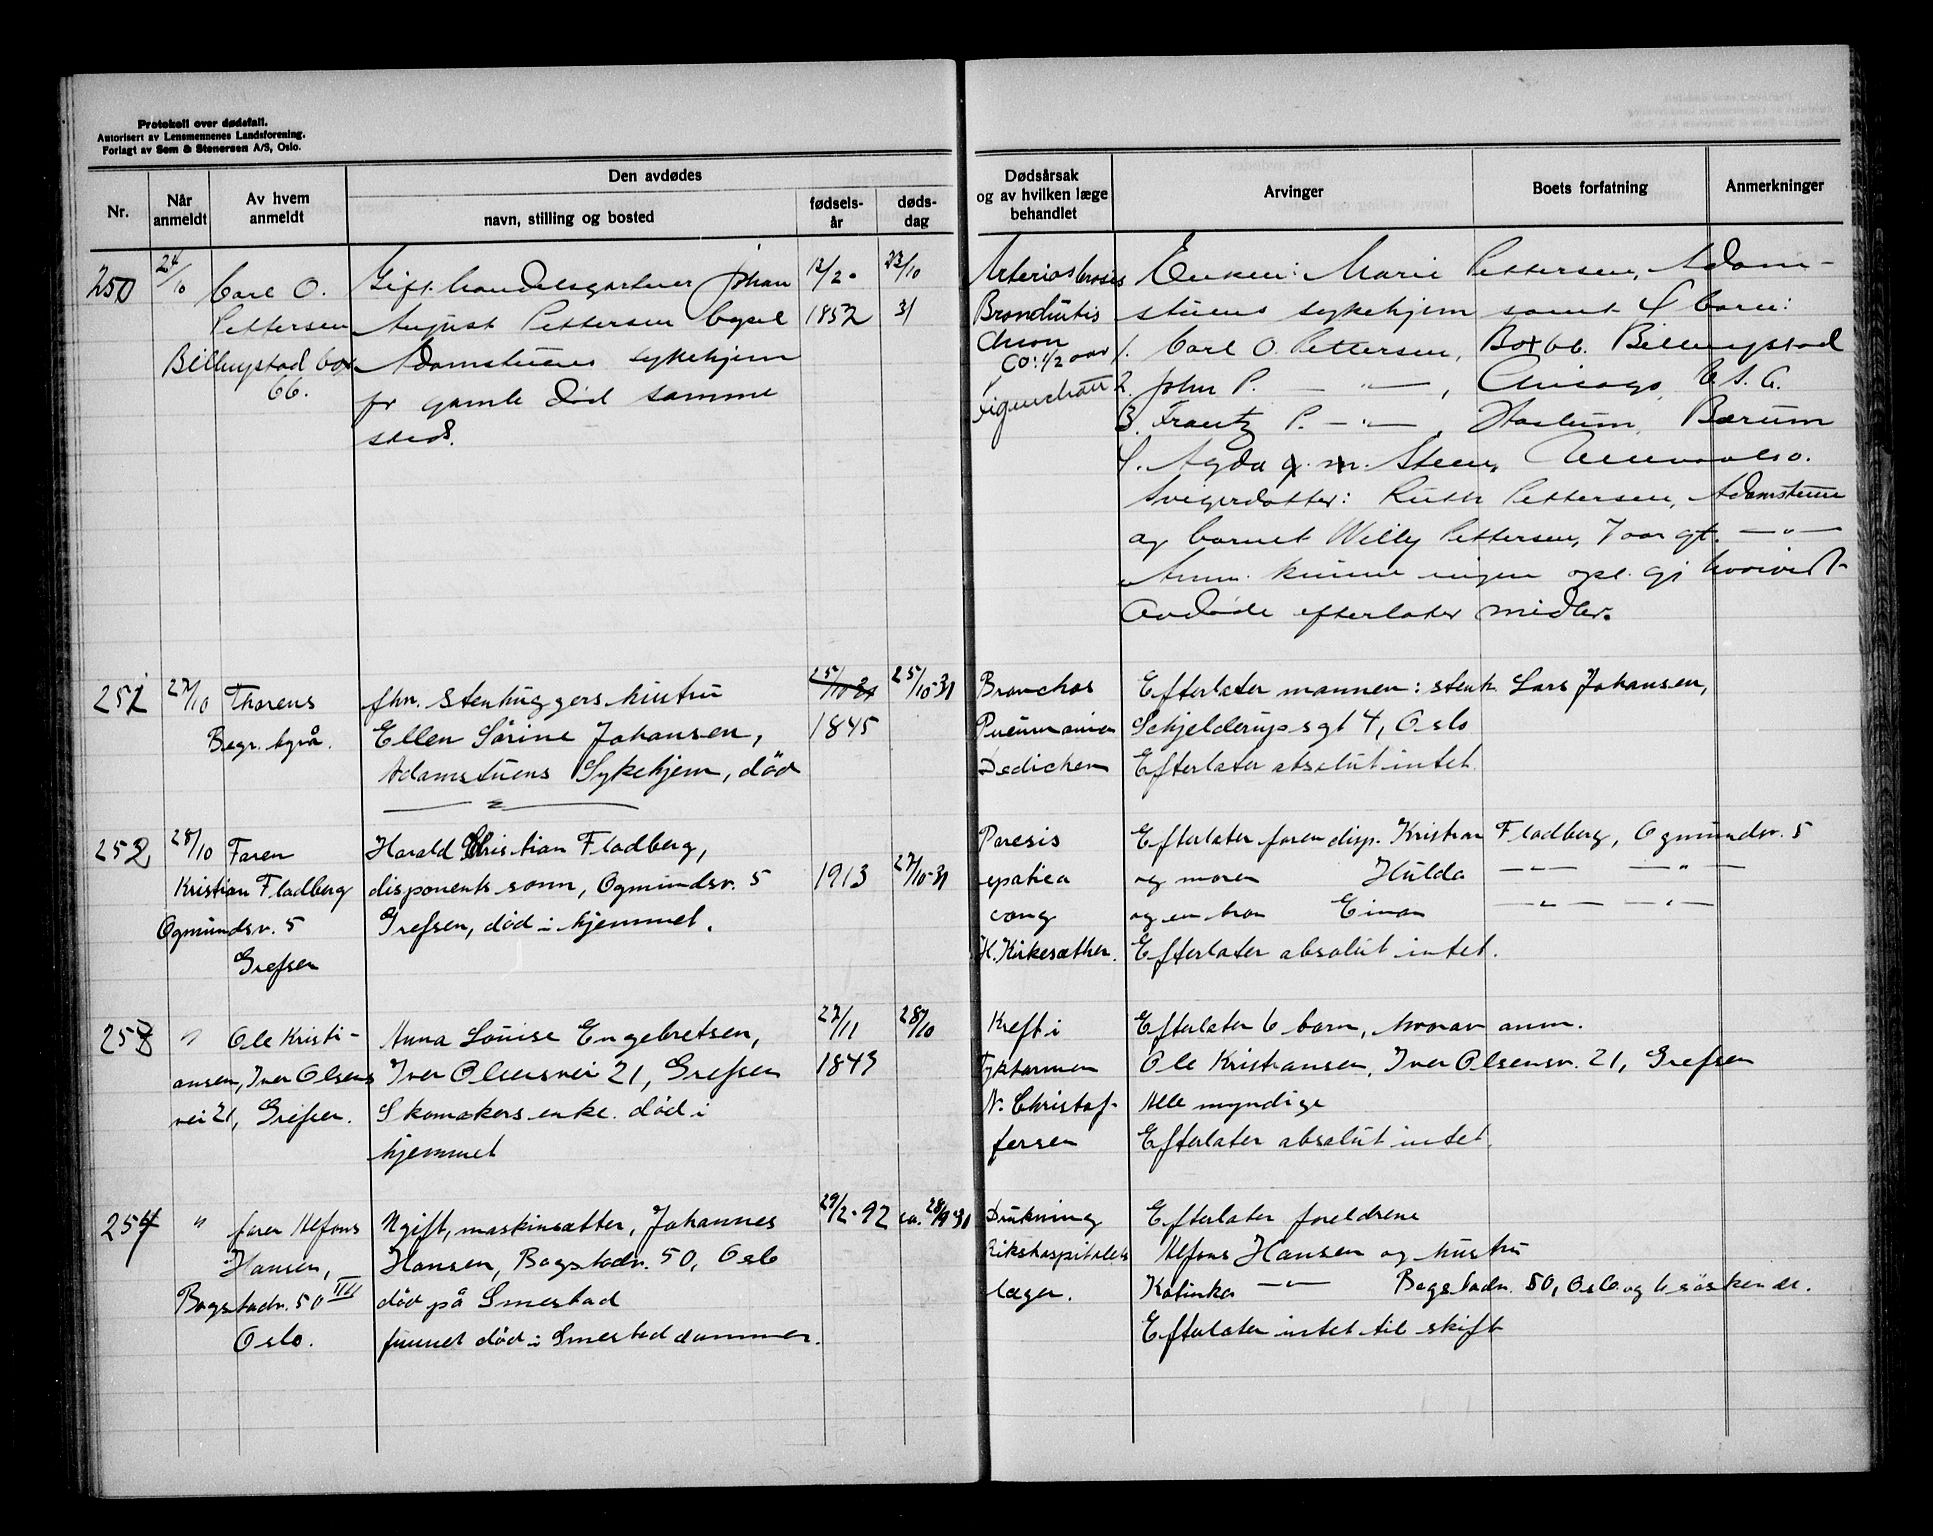 Protokoll over dødsfall.
Autorisert av Lensmennenes Landsforening.
Forlagt av Sem & Stenersen A/S, Oslo.
Nr.
Når anmeldt
Av hvem anmeldt
Den avdødes
navn, stilling og bosted
fødsels-år
døds-dag
Dødsårsak og av hvilken læge behandlet
Arvinger
Boets forfatning
Anmerkninger
250
24/10
Carl O.
Pettersen
Billingstad box
66.
Gift. handelsgartner Johan
August Pettersen bopel
Adamstuens sykehjem
for gamle død samme
sted.
12/2
1852
23/10
31
Bronchitis
chron
1/2 aar
Enken: Marie Pettersen, Adam-
stuens sykehjem samt 4 barn:
1. Carl O. Pettersen, Box 66. Billingstad
2. John P. — " —, Chicago, U.S.A.
3. Frantz P. — " —, Haslum, Bærum
4. Agda g. m. Steen,
Svigerdatter: Ruth Pettersen, Adamstuen
og barnet Willy Pettersen, 7 aar gl. — " —
Anm. kunne ingen opl. gi hvorvidt
avdøde efterlater midler.
251
27/10
Thorens
Begr. byrå.
fhv. stenhuggers hustru
Ellen Sörine Johansen,
Adamstuens Sykehjem, död
— " —
25/10-31
1845
25/10-31
Broncho
Dedichen
Efterlater mannen: stenh. Lars Johansen,
Schjelderupsgt 4, Oslo
Efterlater absolut intet.
252
28/10
Faren
Kristian Fladberg
Ogmundsv. 5
Grefsen
Harald Christian Fladberg,
disponents sønn, Ogmundsv. 5
Grefsen, död i hjemmet.
1913
27/10-31
Paresis
cong
H. Kirkesæther.
Efterlater faren disp. Kristian Fladberg, Ogmundsv. 5
og moren Hulda — " — — " —
og en bror Einar — " — — " —
Efterlater absolut intet.
253
"
Ole Kristi-
ansen, Iver Olsens
vei 21, Grefsen.
Anna Louise Engebretsen,
Iver Olsensvei 21, Grefsen
Skomakers enke. död i
hjemmet
27/11
1843
28/10
Kreft i
tyktarmen
N. Christof-
fersen
Efterlater 6 barn, hvorav anm.
Ole Kristiansen, Iver Olsensv. 21, Grefsen
Alle myndige
Efterlater absolut intet.
254
"
faren Alfons
Hansen,
Bogstadv. 50 III
Oslo.
Ugift, maskinsætter, Johannes
Hansen, Bogstadv. 50, Oslo
död på Smestad
funnet död i Smestaddammen.
29/2-92
ca. 28/9-31
Drukning
Rikshospitalets
læger.
Efterlater foreldrene
Alfons Hansen og hustru
Katinka — " — Bogstadv. 50, Oslo og 6 söskende.
Efterlater intet til skift